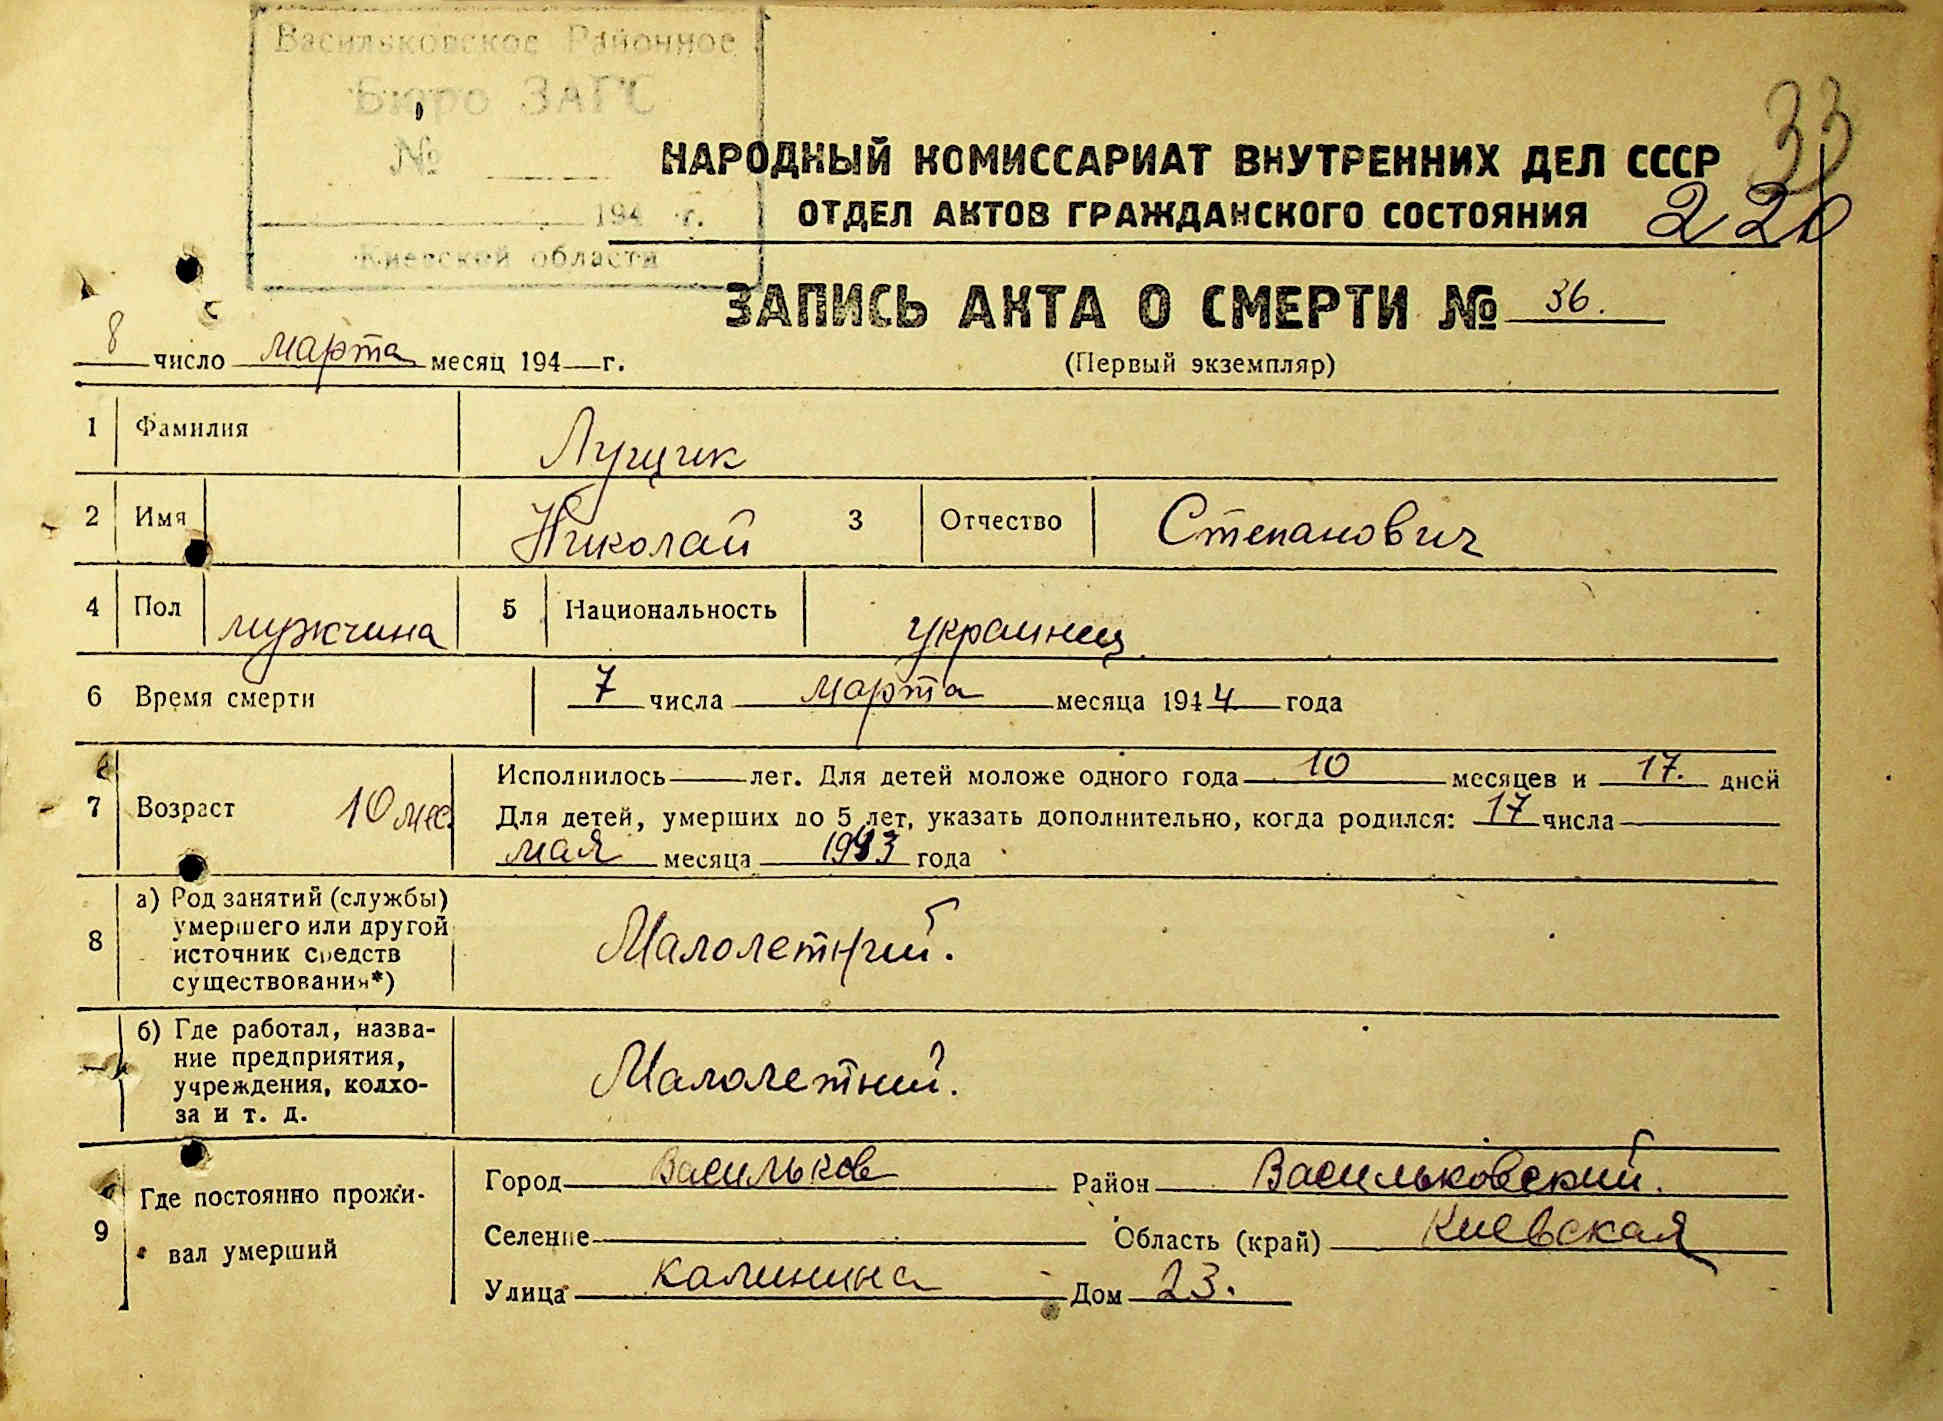 Васильковское Районное
Бюро ЗАГС
№
33
НАРОДНЫЙ КОМИССАРИАТ ВНУТРЕННИХ ДЕЛ СССР
194 г. ОТДЕЛ АКТОВ ГРАЖДАНСКОГО СОСТОЯНИЯ
Киевской области
ЗАПИСЬ АКТА О СМЕРТИ № 36.
8 число марта месяц 194 г. (Первый экземпляр)
1 Фамилия Лущик
2 Имя Николай 3 Отчество Степанович
4 Пол мужчина 5 Национальность украинец
6 Время смерти 7 числа марта месяца 1944 года
Исполнилось лет. Для детей моложе одного года 10 месяцев и 17. дней
7 Возраст 10 мес. Для детей, умерших до 5 лет, указать дополнительно, когда родился: 17 числа
мая месяца 1943 года
а) Род занятий (службы)
умершего или другой
8 источник средств Малолетний.
существования*)
б) Где работал, назва-
ние предприятия, Малолетний.
учреждения, колхо-
за и т. д.
Город Васильков Район Васильковский.
Где постоянно прожи-
9 Селение Область (край) Киевская
вал умерший
Улица Калинина Дом 23.